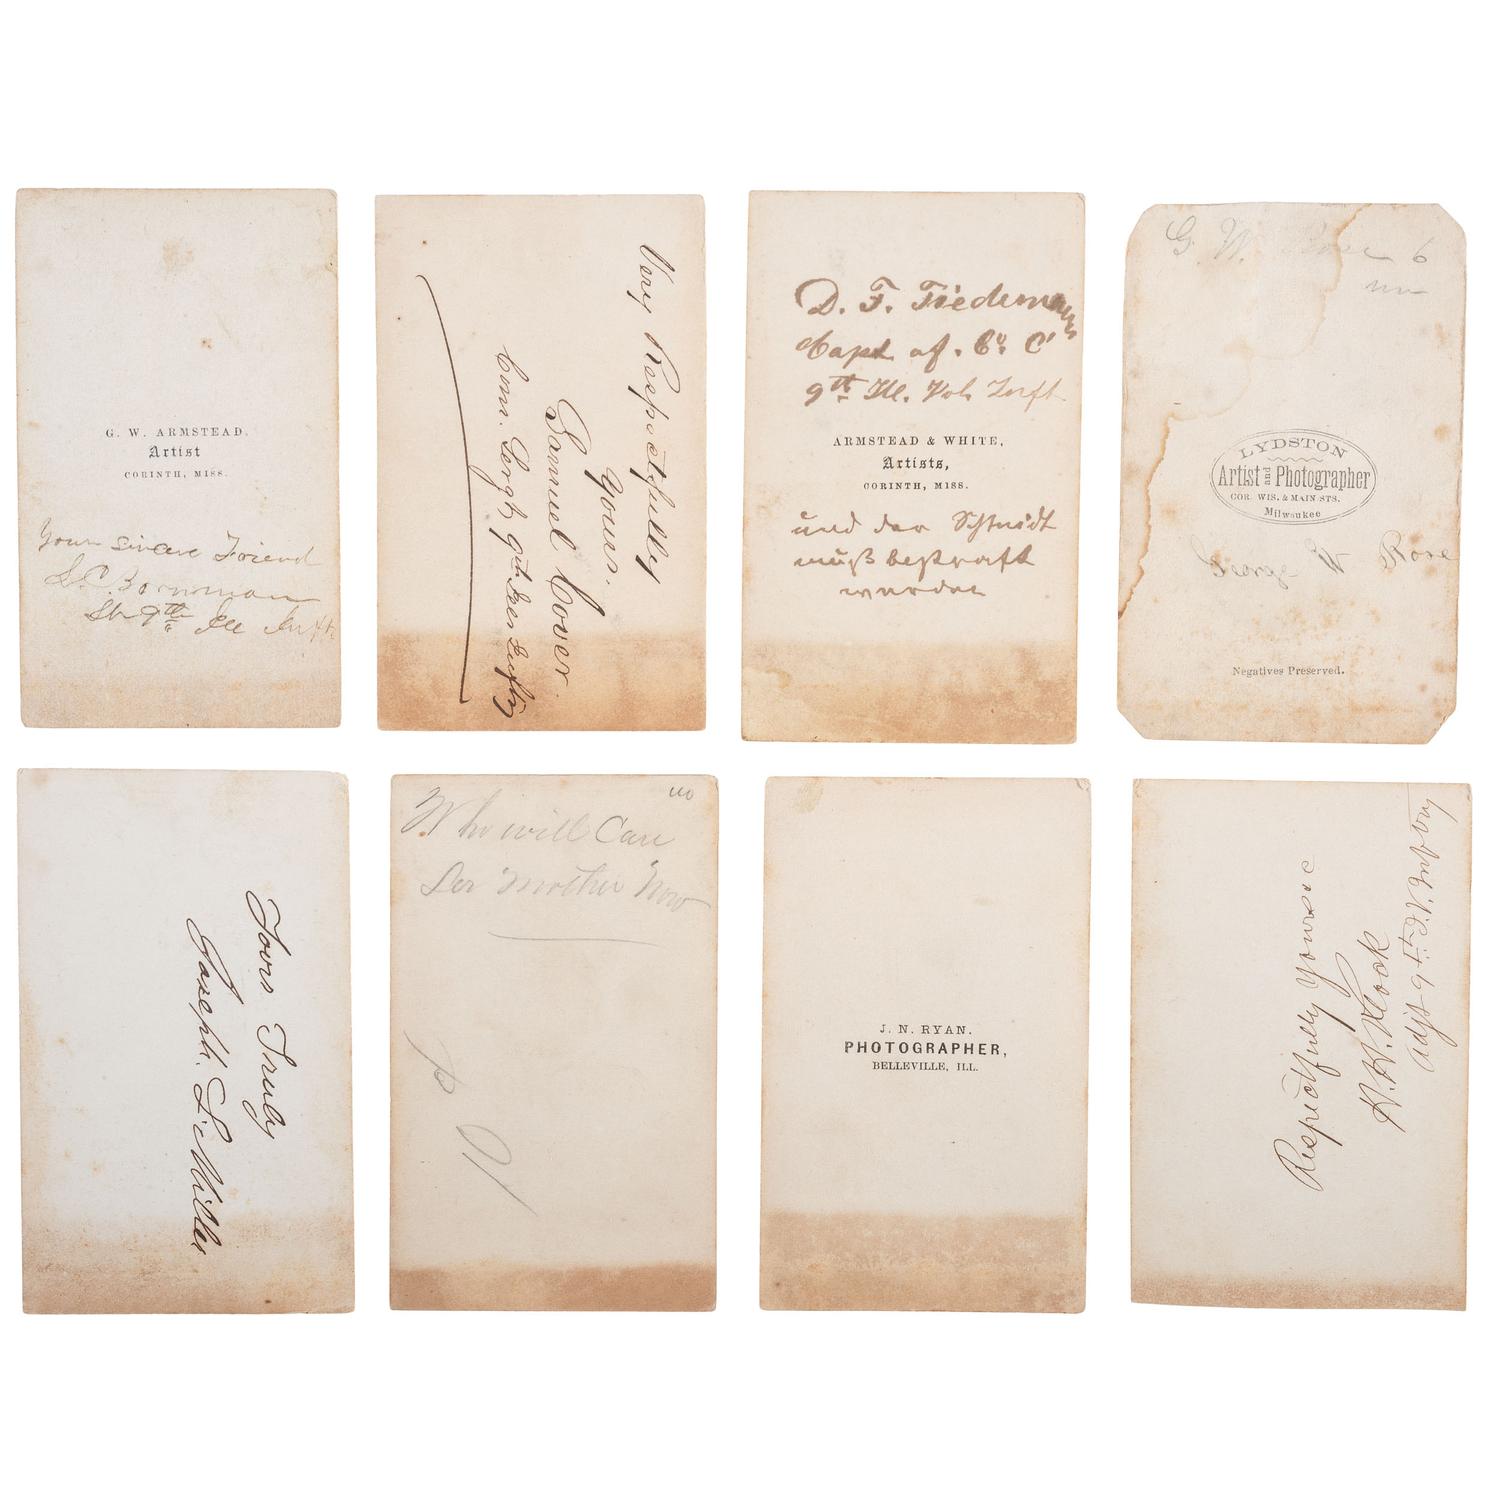 G. W. ARMSTEAD,
Artist
CORINTH, MISS.
Your Sincere Friend
S. C. Bornman
9th Ill Infty
Very Respectfully
Yours.
Samuel Cover.
Com. Sergt 9th Ills Infty
D. F. Tiedemann
Capt of. Co. C
9th Ill. Vol. Inft
ARMSTEAD & WHITE,
Artists,
CORINTH, MISS.
und der Schmidt
muß bestraft
werden
G. W. Rose 6
LYDSTON
Artist and Photographer
COR. WIS. & MAIN STS.
Milwaukee
George W Rose
Negatives Preserved.
Yours Truly
Joseph. S. Miller
Who will Care
for Mother Now
J. N. RYAN.
PHOTOGRAPHER,
BELLEVILLE, ILL.
Respectfully Yours &c
H. H. Klock
Adjt 9th I. V. Infty